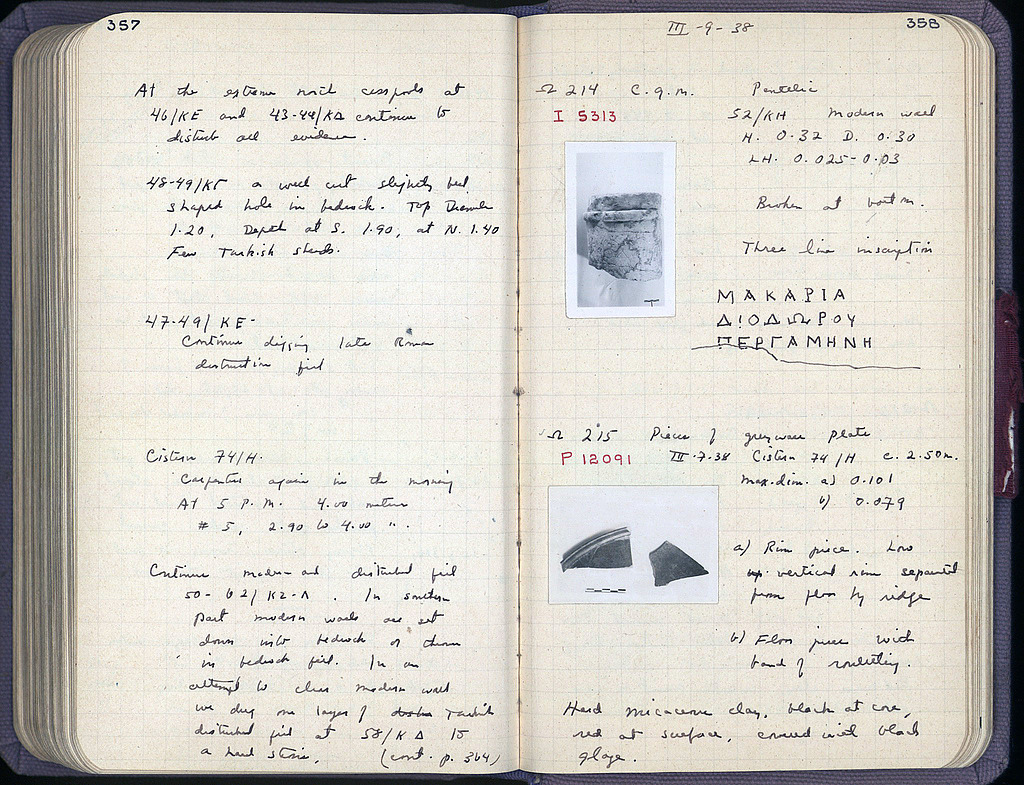 357
At the extreme north cesspools at
46/ΚΕ and 43-44/ΚΔ continue to
disturb all evidence.
48-49/ΚΓ a well cut slightly bell
shaped hole in bedrock. Top Diameter
1.20, Depth at S. 1.90, at N. 1.40
Few Turkish sherds.
47-49/ΚΕ-
Continue digging late Roman
destruction fill
Cistern 74/Η.
Carpenter again in the morning
At 5 P.M. 4.00 meters
# 5, 2.90 to 4.00 "
Continue modern and disturbed fill
50-62/ΚΖ-Λ. In southern
part modern walls are set
down into bedrock or thrown
in bedrock fill. In an
attempt to clear modern wall
we dug one layer of Turkish
disturbed fill at 58/ΚΔ to
a hard stosis.
(cont. p. 364)
III-9-38
358
Ω 214 C.g.m. Pentelic
I 5313
52/ΚΗ Modern wall
H. 0.32 D. 0.30
LH. 0.025-0.03
Broken at bottom.
Three line inscription
ΜΑΚΑΡΙΑ
ΔΙΟΔΩΡΟΥ
ΠΕΡΓΑΜΗΝΗ
Ω 215 Pieces of grey ware plate
P 12091
III-7-38 Cistern 74/Η c. 2.50m.
Max.dim. a) 0.101
b) 0.079
a) Rim piece. Low
vertical rim separated
from floor by ridge
b) Floor piece with
band of rouletting.
Hard micaceous clay, black at core,
red at surface, covered with black
glaze.